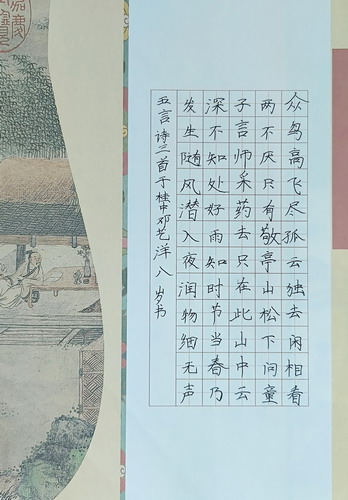 众鸟高飞尽孤云独去闲相看
两不厌只有敬亭山松下问童
子言师采药去只在此山中云
深不知处好雨知时节当春乃
发生随风潜入夜润物细无声
五言诗三首于桂中邓艺洋八岁书